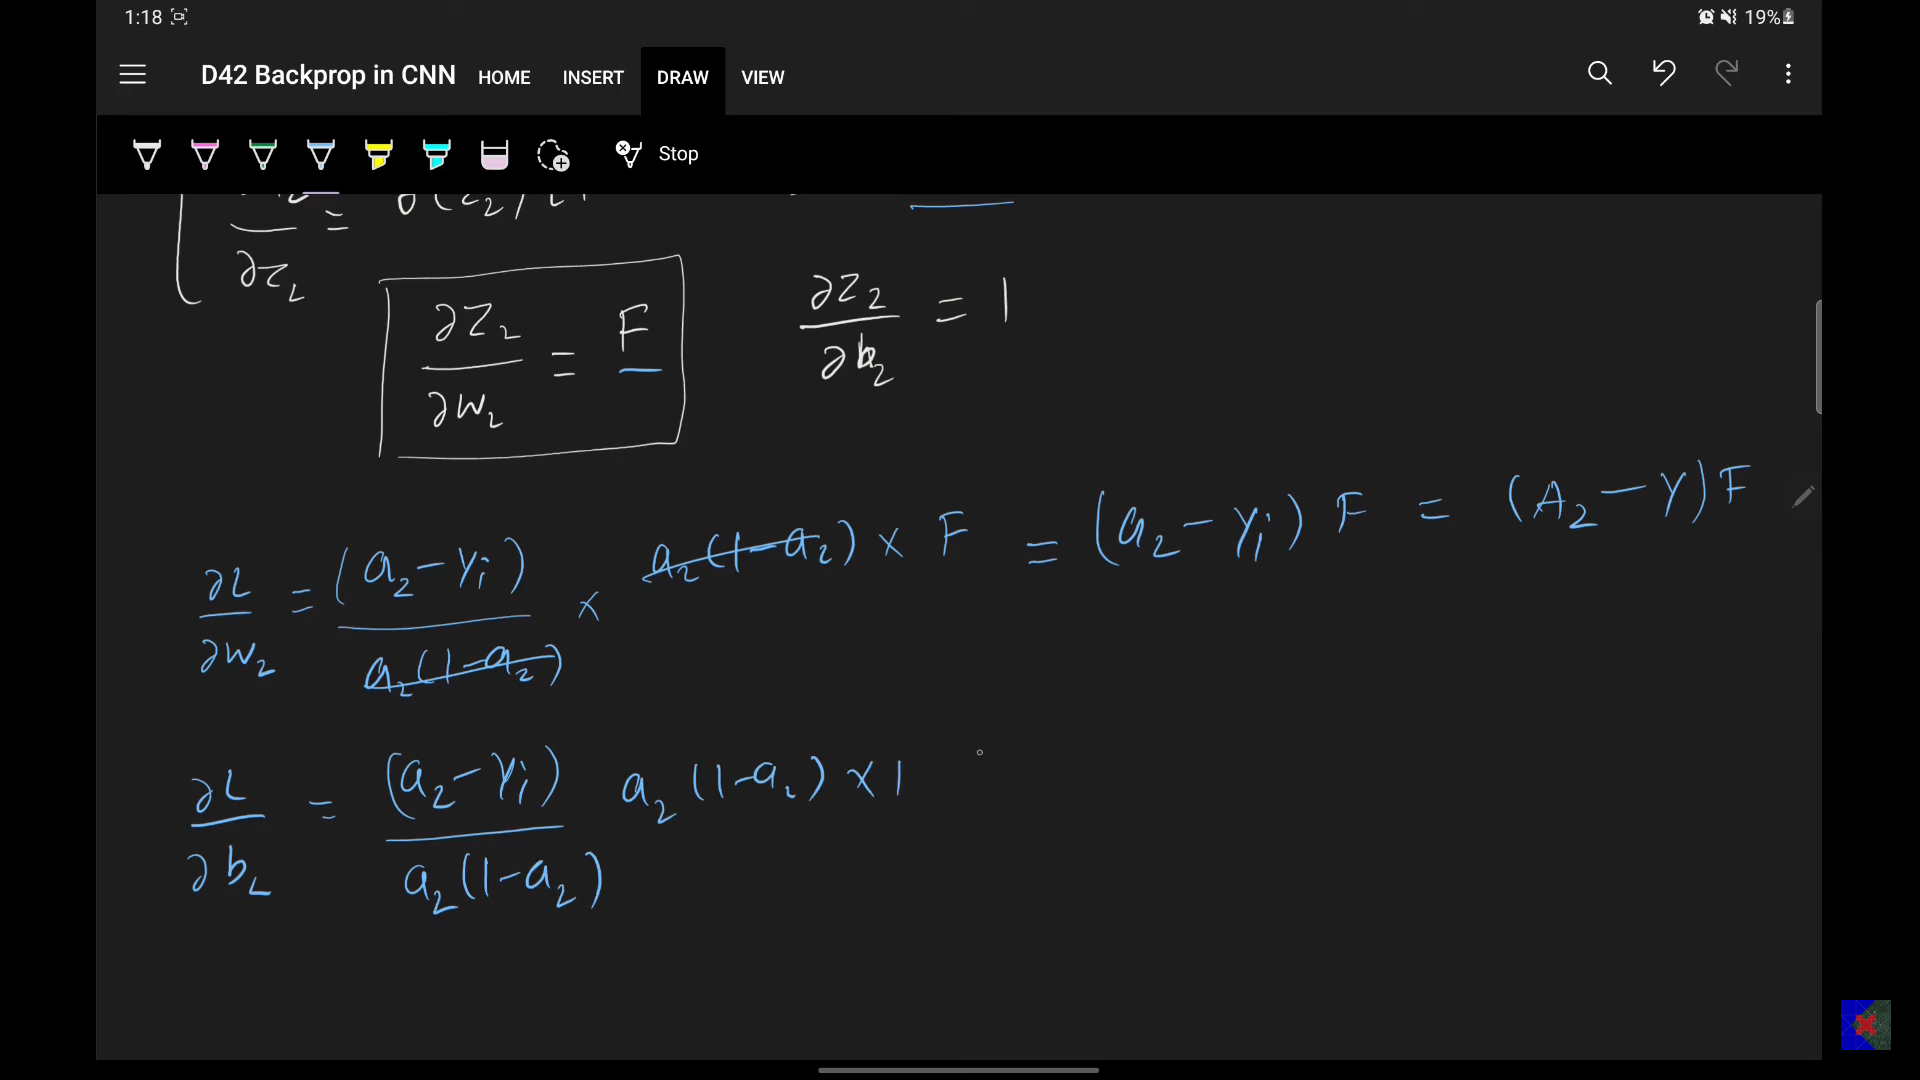 1:18 19%
D42 Backprop in CNN HOME INSERT DRAW VIEW
Stop
∂z₂
∂Z₂/∂W₂ = F ∂Z₂/∂b₂ = 1
∂L/∂W₂ = (a₂-yi)/a₂(1-a₂) × a₂(1-a₂) × F = (a₂-yi) F = (A₂-Y) F
∂L/∂b₂ = (a₂-yi)/a₂(1-a₂) a₂(1-a₂) × 1